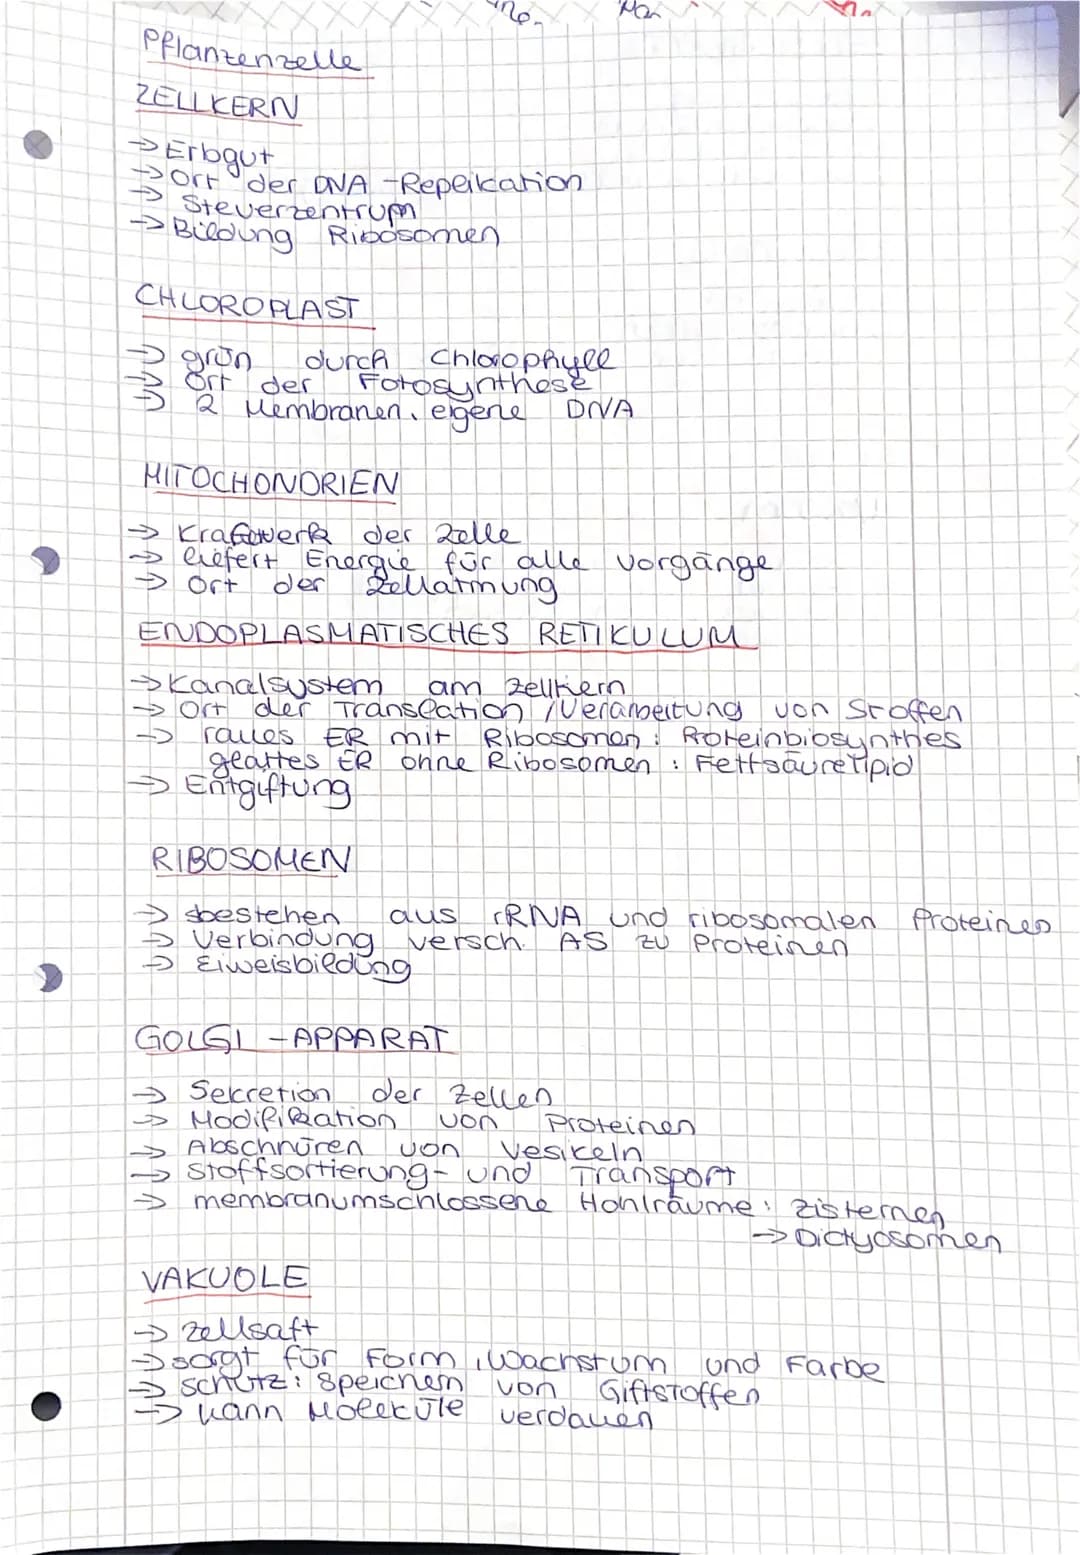 Pflanzenzelle
ZELLKERN
→ Erbgut
→ Ort der DNA-Repeikation
→ Steuerzentrum
→ Bildung Ribosomen
CHLOROPLAST
→ grün durch Chlorophyll
→ Ort der Fotosynthese
→ 2 Membranen, eigene DNA
MITOCHONDRIEN
→ Kraftwerk der Zelle
→ liefert Energie für alle Vorgänge
→ Ort der Zellatmung
ENDOPLASMATISCHES RETIKULUM
→ Kanalsystem am Zellkern
→ Ort der Translation / Verarbeitung von Stoffen
→ raues ER mit Ribosomen: Proteinbiosynthes
glattes ER ohne Ribosomen: Fettsäurelipid
→ Entgiftung
RIBOSOMEN
→ bestehen aus rRNA und ribosomalen Proteinen
→ Verbindung versch. AS zu Proteinen
→ Eiweisbildung
GOLGI-APPARAT
→ Sekretion der Zellen
→ Modifikation von Proteinen
→ Abschnüren von Vesikeln
→ Stoffsortierung- und Transport
→ membranumschlossene Hohlräume: Zisternen
→ Dictyosomen
VAKUOLE
→ Zellsaft
→ sorgt für Form, Wachstum und Farbe
→ Schutz: Speichern von Giftstoffen
→ kann Moleküle verdauen